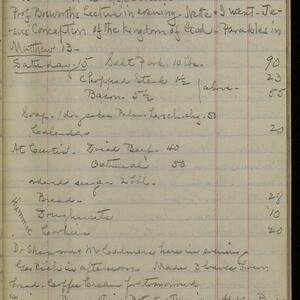 Prof. Bosworth's Lecture in evening - Note - I want - Je-
sus' Conception of the Kingdom of God - Parables in
Matthew 13 -
Saturday - 15 Salt Pork 10 lbs. 90
Chopped Steak 1½ 23
Bacon 5½ above 55
Soap. 1 dz. cakes Palm 50
Calendar 20
At Curtis. Dried Beef 40
Oatmeal 50
sugar 2 lbl.
Bread - 28
Doughnuts 10
Cookies 20
Dr Sherwood & Mr here in evening
in afternoon. Made 3 loaves
bread. Coffee Cream for tomorrow